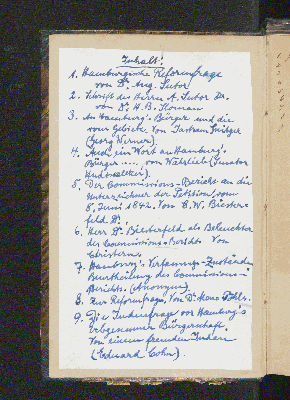 Inhalt:
1. Hamburgische Reformfrage
von Dr. Aug. Sutor
2. Schrift des Herrn A. Sutor Dr.
von Dr. H. B. Sloman
3. An Hamburg's Bürger und die
von
(Georg Werner).
4. Auch ein Wort an Hamburg's
Bürger .... von Wahrlieb (Senator
Hudtwalker).
5. Der Commissions-Bericht an die
Unterzeichner der Petition vom
8. Juni 1842. Von C. W. Biester-
feld. Dr.
6. Herr Dr. Biesterfeld als Beleuchter
des Commissions-Berichts Von
Christern.
7. Hamburg's Verfassungs-Zustände
Beurtheilung des Commissions-
Berichts. (Anonym)
8. Zur Reformfrage, Von Dr.
9. Die Judenfrage vor Hamburg's
Erbgesessener Bürgerschaft.
Von einem fremden Juden
(Eduard Cohn).